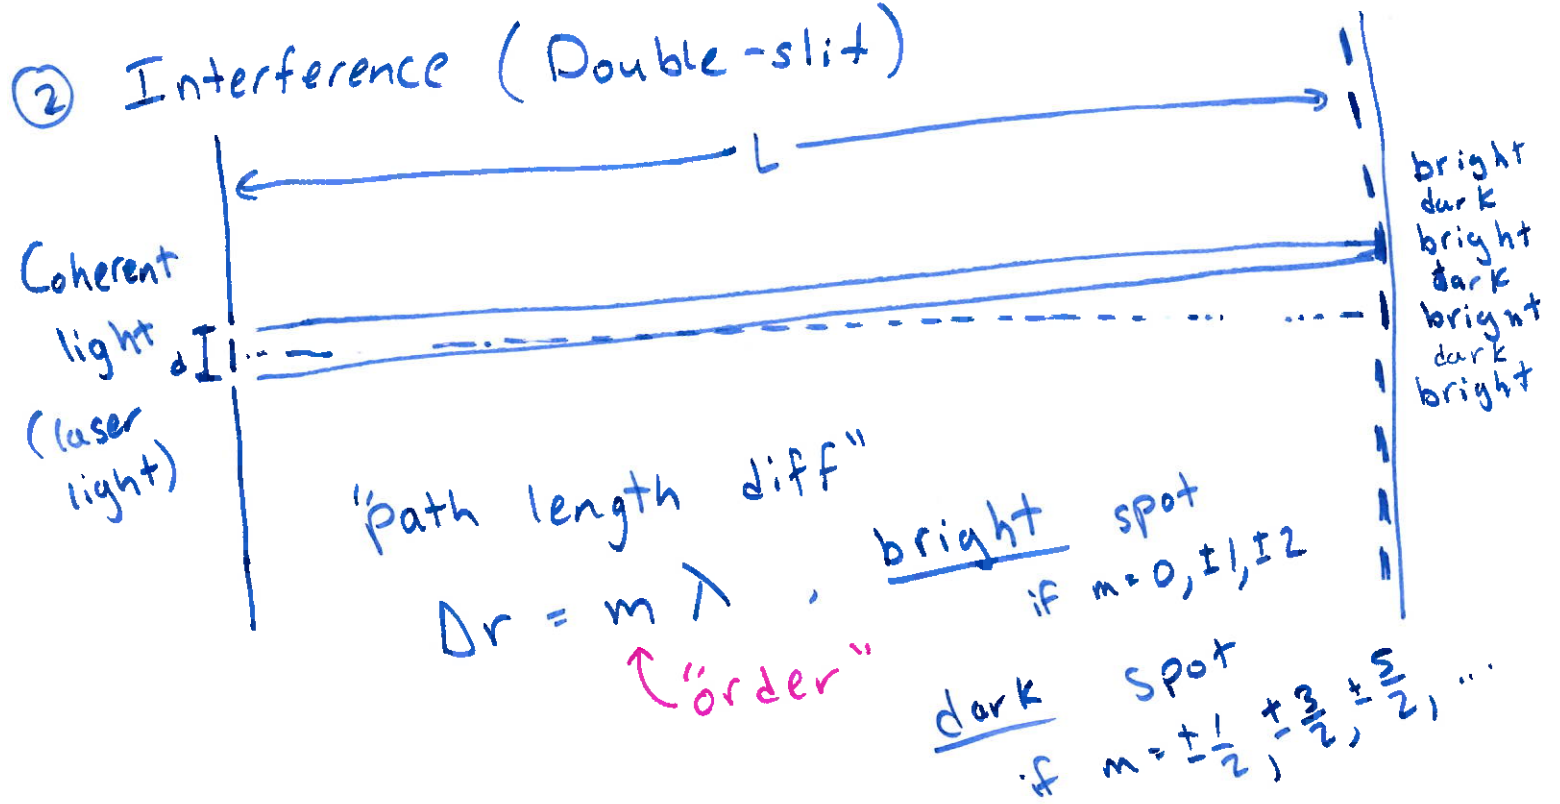 ② Interference (Double-slit)
L
Coherent
light
(laser
light)
d
bright
dark
bright
dark
bright
dark
bright
"path length diff"
Δr = mλ,
"order"
bright spot
if m = 0, ±1, ±2
dark spot
if m = ±1/2, ±3/2, ±5/2, ...